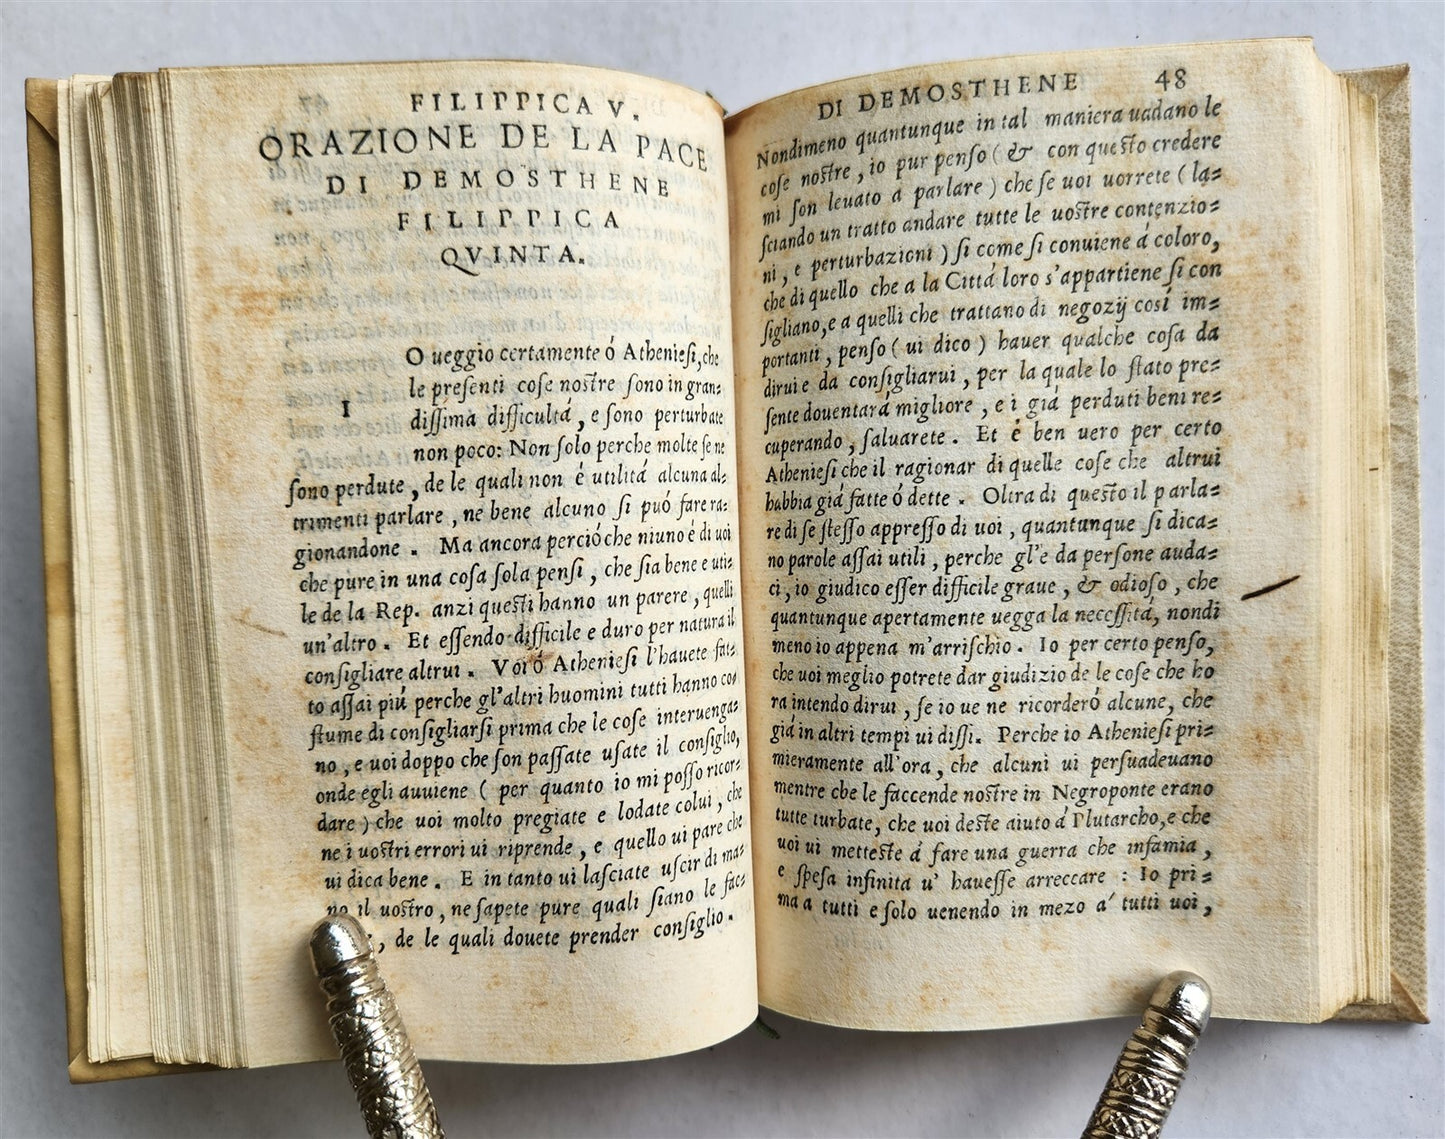 FILIPPICA V.
ORAZIONE DE LA PACE
DI DEMOSTHENE
FILIPPICA
QVINTA.
I
O ueggio certamente ó Atheniesi, che
le presenti cose nostre sono in gran=
dissima difficultá, e sono perturbate
non poco: Non solo perche molte se ne
sono perdute, de le quali non é utilitá alcuna al=
trimenti parlare, ne bene alcuno si puó fare ra=
gionandone. Ma ancora perció che niuno é di uoi
che pure in una cosa sola pensi, che sia bene e uti=
le de la Rep. anzi questi hanno un parere, quelli
un'altro. Et essendo difficile e duro per natura il
consigliare altrui. Voi ó Atheniesi l'hauete fat=
to assai piú perche gl'altri huomini tutti hanno co=
stume di consigliarsi prima che le cose interuenga=
no, e uoi doppo che son passate usate il consiglio,
onde egli auuiene ( per quanto io mi posso ricor=
dare ) che uoi molto pregiate e lodate colui, che
ne i uostri errori ui riprende, e quello ui pare che
ui dica bene. E in tanto ui lasciate uscir di ma=
no il uostro, ne sapete pure quali siano le fac=
, de le quali douete prender consiglio.
DI DEMOSTHENE 48
Nondimeno quantunque in tal maniera uadano le
cose nostre, io pur penso ( & con questo credere
mi son leuato a parlare ) che se uoi uorrete ( la=
sciando un tratto andare tutte le uostre contenzio=
ni, e perturbazioni ) si come si conuiene á coloro,
che di quello che a la Cittá loro s'appartiene si con
sigliano, e a quelli che trattano di negozij cosí im=
portanti, penso ( ui dico ) hauer qualche cosa da
dirui e da consigliarui, per la quale lo stato pre=
sente douentará migliore, e i giá perduti beni re=
cuperando, saluarete. Et é ben uero per certo
Atheniesi che il ragionar di quelle cose che altrui
habbia giá fatte ó dette. Oltra di questo il parla=
re di se stesso appresso di uoi, quantunque si dica=
no parole assai utili, perche gl'e da persone auda=
ci, io giudico esser difficile graue, & odioso, che
quantunque apertamente uegga la necessitá, nondi
meno io appena m'arrischio. Io per certo penso,
che uoi meglio potrete dar giudizio de le cose che ho
ra intendo dirui, se io ue ne ricorderó alcune, che
giá in altri tempi ui dissi. Perche io Atheniesi pri=
mieramente all'ora, che alcuni ui persuadeuano
mentre che le faccende nostre in Negroponte erano
tutte turbate, che uoi deste aiuto á Plutarcho, e che
uoi ui metteste á fare una guerra che infamia,
e spesa infinita u' hauesse arreccare : Io pri=
ma a tutti e solo uenendo in mezo a' tutti uoi,